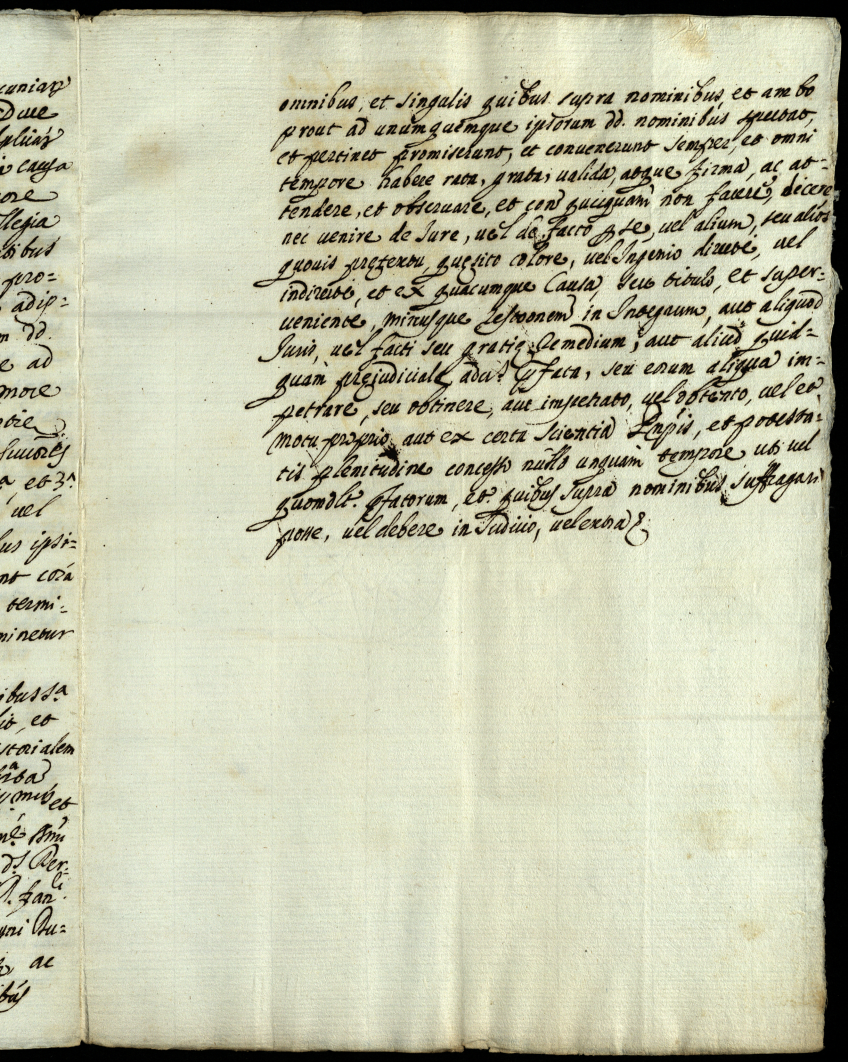 cuniar
Due
plicar
causa
ore
llegia
tibus
pro=
adip=
m dd.
e ad
more
et 3ᵃ
vel
lus ipsi=
nt corá
termi=
minetur
ibus sᵃ
et
storialem
et
Ru=
ac
omnibus, et singulis quibus supra nominibus, et ambo
prout ad unumquemque ipsorum dd. nominibus spectat,
et pertinet promiserunt, et convenerunt semper, et omni
tempore habere rata, grata, valida, atque firma, ac at=
tendere, et observare, et con quiquam non facere, dicere
nec venire de Jure, vel de facto p se, vel alium, seu alios
quovis pretextu, quesito colore, vel Ingenio directe, vel
indirecte, et ex quacumque Causa, seu titulo, et super=
veniente, minusque Restõnem in Integrum, aut aliquod
Juris, vel facti seu gratie Remedium, aut aliud quid=
quam prejudiciale pfata, seu eorum aliqua im=
petrare, seu obtinere, aut impetrato, vel obtento, vel et
motu proprio aut ex certa scientia Pnpis, et potesta=
tis plenitudine concesso nullo unquam tempore uti vel
quomdlt. pfatorum, et quibus supra nominibus suffragari
posse, vel debere in Judicio, vel extra